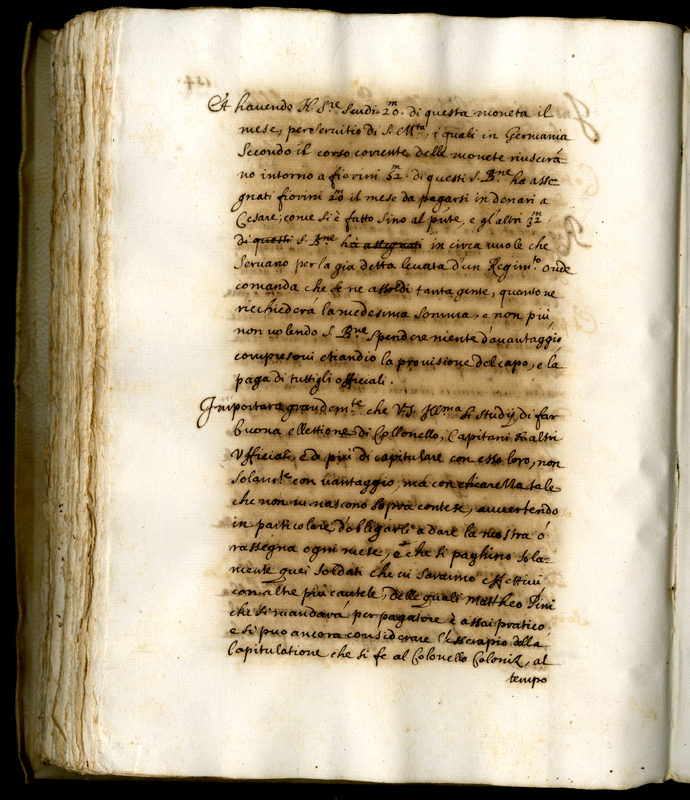 Et havendo N. Sre Scudi 20m. di questa moneta il
mese, per servitio di S. Mtà, i quali in Germania
secondo il corso corrente delle monete riuscirà-
no intorno a fiorini 52m. di questi S. Bne ha asse-
gnati fiorini 20m il mese da pagarsi in denari a
Cesare, come si è fatto sino al pnte, e gl'altri 32m.
di questi S. Bne ha assegnati in circa vuole che
servano per la già detta levata d'un Regimto. onde
comanda che se ne assoldi tanta gente, quanto ne
richiederà la medesima somma, e non più
non volendo S. Bne spendere niente d'avantaggio
compresovi etiandio la provisione del capo, e la
paga di tutti gli officiali.
Importarà grandemte. che V.S. Illma si studij di far
buona elettione di Collonello, Capitani & altri
Ufficiali, e di più di capitulare con esso loro, non
solamte con vantaggio, ma con chiarezza tale
che non vi nascono sopra contese, avvertendo
in particolare d'obligarli a dare la mostra ò
rassegna ogni mese, e che si paghino sola-
mente quei soldati che vi saranno effettivi
con altre più cautele, delle quali Mattheo Pini
che si mandarà per pagatore è assai pratico
e si può ancora considerare l'essempio della
Capitulatione che si fe al Colonello Coloniz, al
tempo